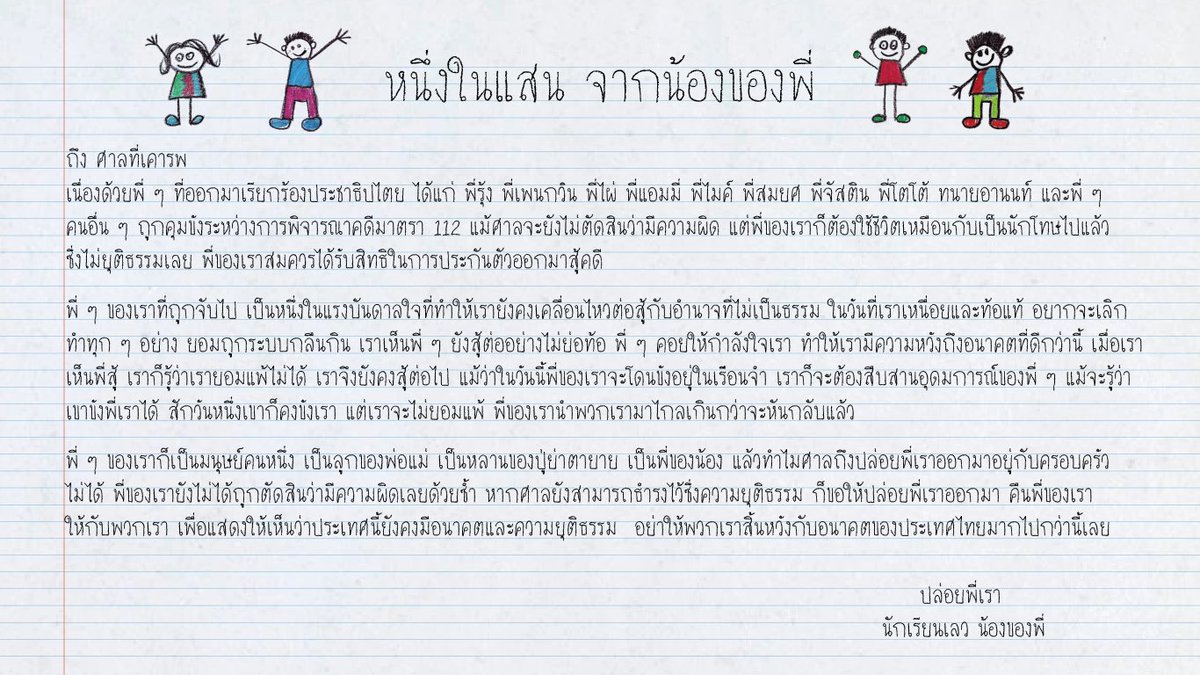 หนึ่งในแสน จากน้องของพี่
ถึง ศาลที่เคารพ
เนื่องด้วยพี่ ๆ ที่ออกมาเรียกร้องประชาธิปไตย ได้แก่ พี่รุ้ง พี่เพนกวิน พี่ไผ่ พี่แอมมี่ พี่ไมค์ พี่สมยศ พี่จัสติน พี่โตโต้ ทนายอานนท์ และพี่ ๆ
คนอื่น ๆ ถูกคุมขังระหว่างการพิจารณาคดีมาตรา 112 แม้ศาลจะยังไม่ตัดสินว่ามีความผิด แต่พี่ของเราก็ต้องใช้ชีวิตเหมือนกับเป็นนักโทษไปแล้ว
ซึ่งไม่ยุติธรรมเลย พี่ของเราสมควรได้รับสิทธิในการประกันตัวออกมาสู้คดี
พี่ ๆ ของเราที่ถูกจับไป เป็นหนึ่งในแรงบันดาลใจที่ทำให้เรายังคงเคลื่อนไหวต่อสู้กับอำนาจที่ไม่เป็นธรรม ในวันที่เราเหนื่อยและท้อแท้ อยากจะเลิก
ทำทุก ๆ อย่าง ยอมถูกระบบกลืนกิน เราเห็นพี่ ๆ ยังสู้ต่ออย่างไม่ย่อท้อ พี่ ๆ คอยให้กำลังใจเรา ทำให้เรามีความหวังถึงอนาคตที่ดีกว่านี้ เมื่อเรา
เห็นพี่สู้ เราก็รู้ว่าเรายอมแพ้ไม่ได้ เราจึงยังคงสู้ต่อไป แม้ว่าในวันนี้พี่ของเราจะโดนขังอยู่ในเรือนจำ เราก็จะต้องสืบสานอุดมการณ์ของพี่ ๆ แม้จะรู้ว่า
เขาขังพี่เราได้ สักวันหนึ่งเขาก็คงขังเรา แต่เราจะไม่ยอมแพ้ พี่ของเรานำพวกเรามาไกลเกินกว่าจะหันกลับแล้ว
พี่ ๆ ของเราก็เป็นมนุษย์คนหนึ่ง เป็นลูกของพ่อแม่ เป็นหลานของปู่ย่าตายาย เป็นพี่ของน้อง แล้วทำไมศาลถึงปล่อยพี่เราออกมาอยู่กับครอบครัว
ไม่ได้ พี่ของเรายังไม่ได้ถูกตัดสินว่ามีความผิดเลยด้วยซ้ำ หากศาลยังสามารถธำรงไว้ซึ่งความยุติธรรม ก็ขอให้ปล่อยพี่เราออกมา คืนพี่ของเรา
ให้กับพวกเรา เพื่อแสดงให้เห็นว่าประเทศนี้ยังคงมีอนาคตและความยุติธรรม อย่าให้พวกเราสิ้นหวังกับอนาคตของประเทศไทยมากไปกว่านี้เลย
ปล่อยพี่เรา
นักเรียนเลว น้องของพี่